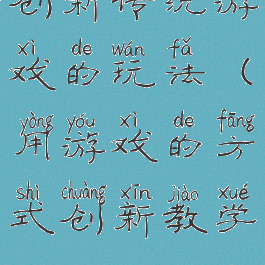 创新传统游
xì de wán fǎ
戏的玩法（
yòng yóu xì de fāng
用游戏的方
shì chuàng xīn jiào xué
式创新教学